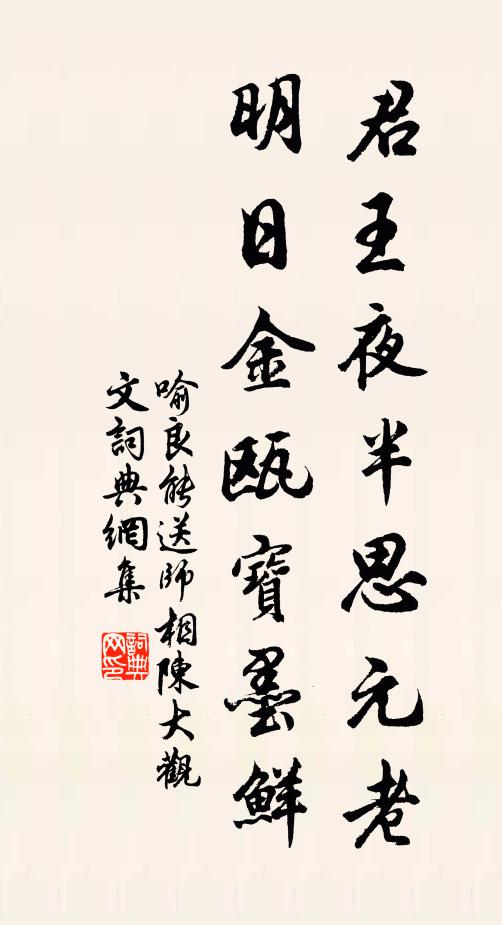 君王夜半思元老
明日金甌寶墨鮮
喻良能送師相陳大觀
文詞典網集
詞典
网印